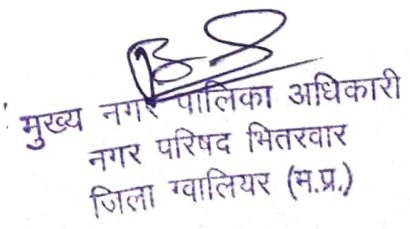 मुख्य नगर पालिका अधिकारी
नगर परिषद भितरवार
जिला ग्वालियर (म.प्र.)